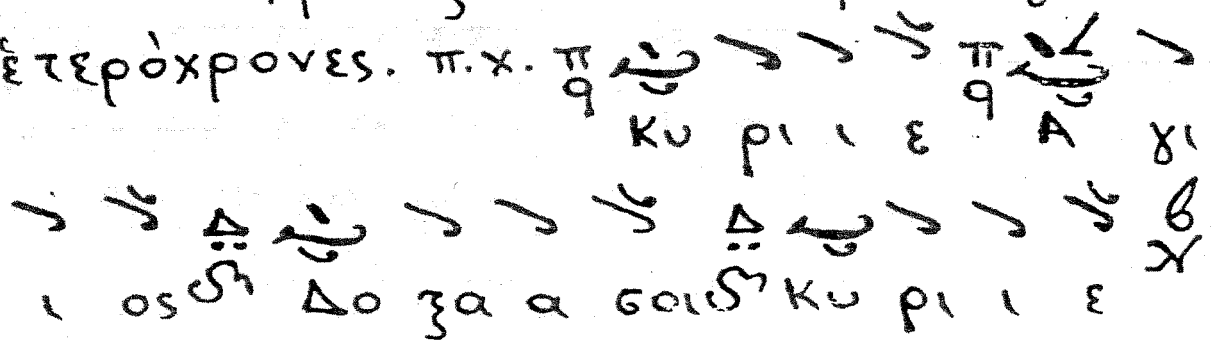 ἑτερόχρονες. π.χ. π
ϙ Κυ ρι ι ε π
ϙ Α γι
ι ος Δ Δο ξα α α σοι Δ Κυ ρι ι ε β